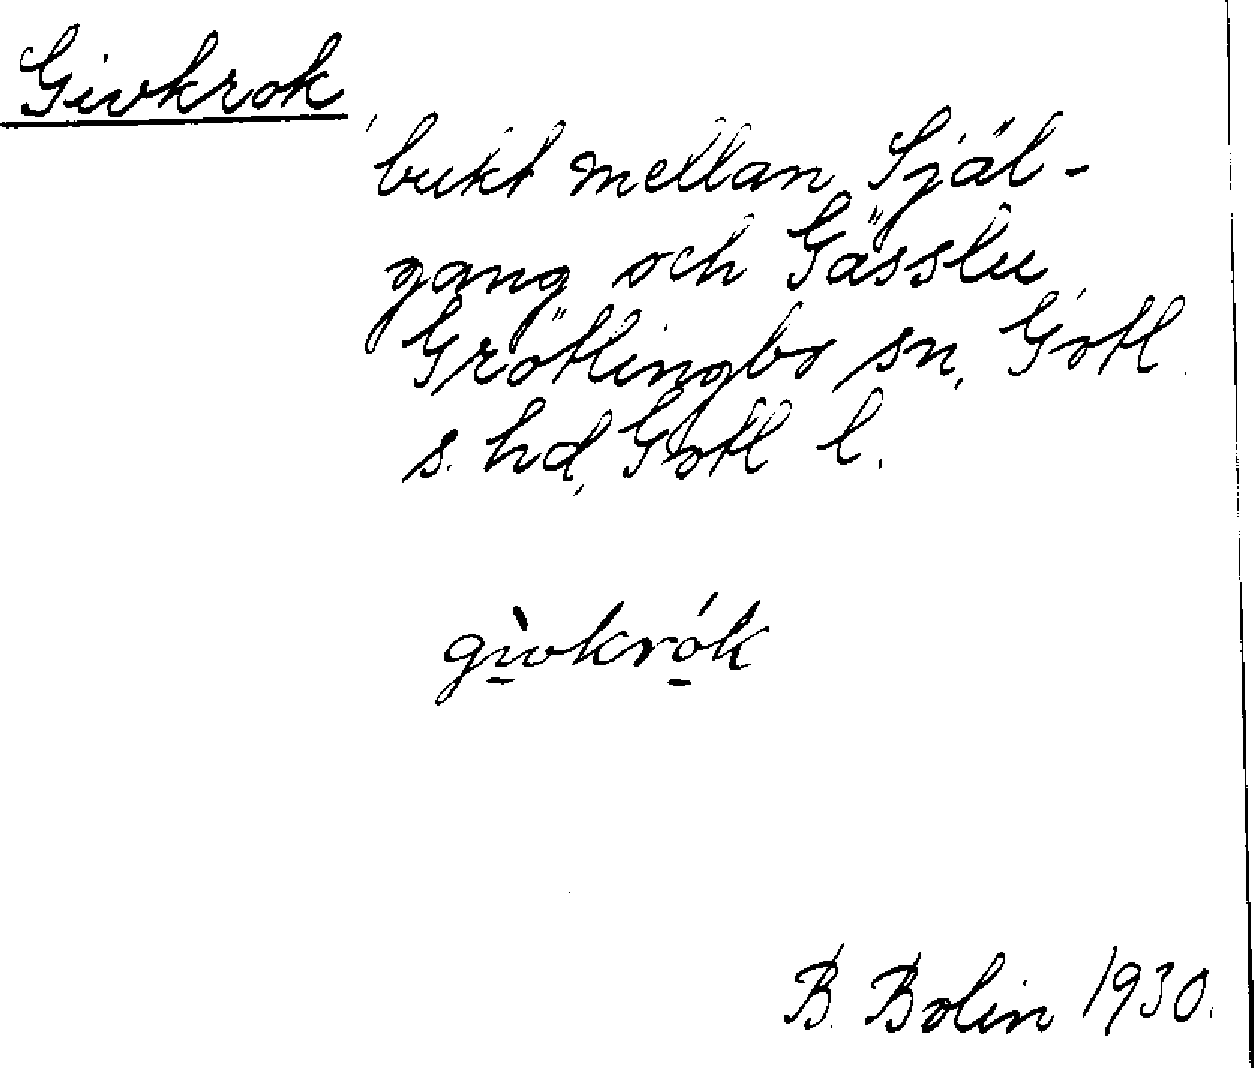 Givkrok
bukt mellan Själ-
gang och Gässlu
Grötlingbo sn, Gotl.
s. hd, Gotl l.
gìvkrók
B. Bolin 1930.